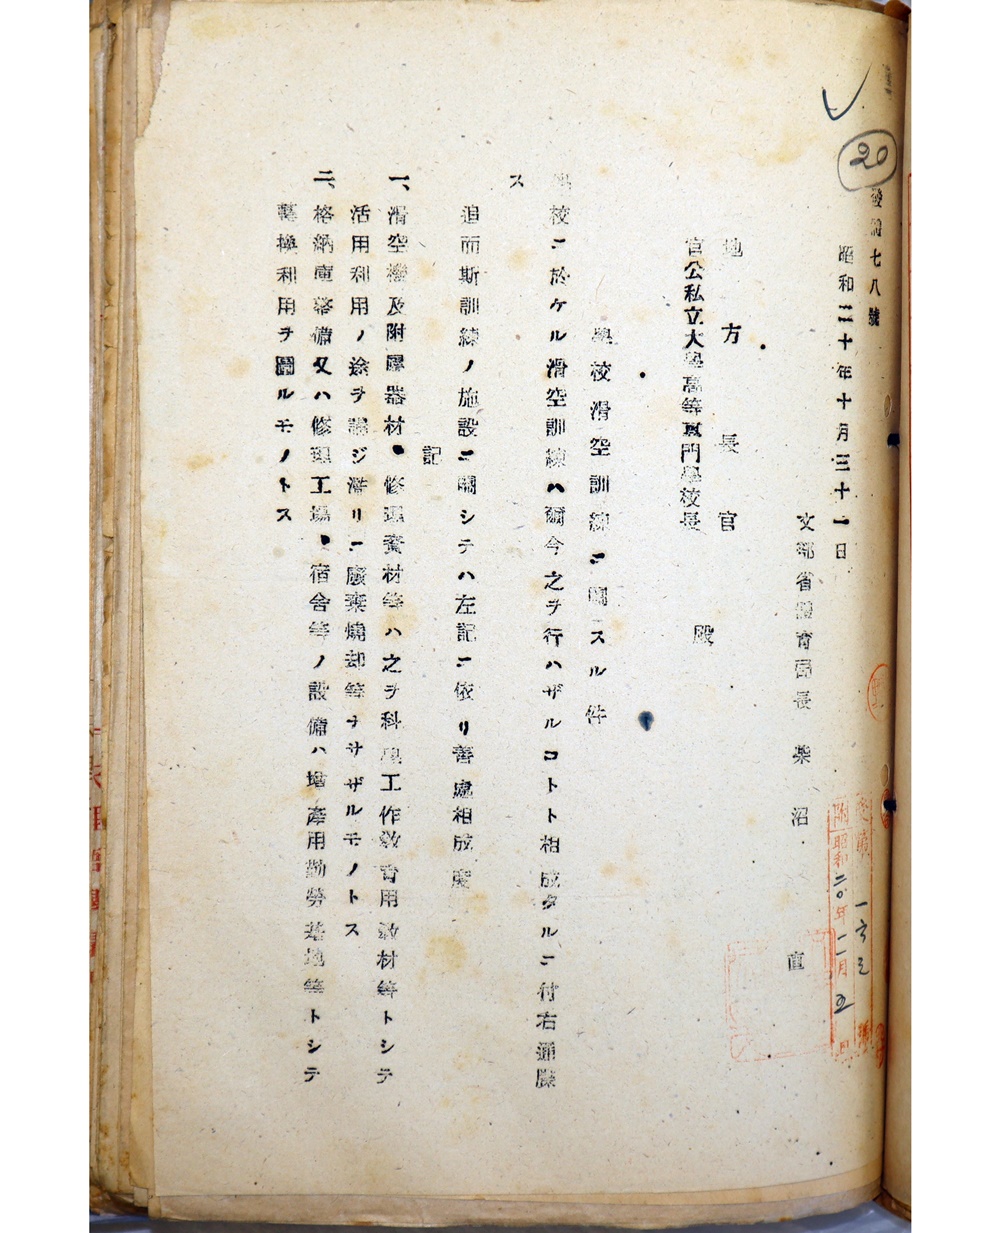 20
發體七八號
昭和二十年十月三十一日
文部省體育局長 柴沼直
地方長官
官公私立大學高等專門學校長
殿
學校滑空訓練ニ關スル件
學校ニ於ケル滑空訓練ハ爾今之ヲ行ハザルコトト相成タルニ付右通牒
ス
追而斯訓練ノ施設ニ關シテハ左記ニ依リ善處相成度
記
一、滑空機及附屬器材、修理資材等ハ之ヲ科學工作敎育用敎材等トシテ
活用利用ノ途ヲ講ジ濫リニ廢棄燒却等ヲナサザルモノトス
二、格納庫落備又ハ修理工場、宿舍等ノ設備ハ增產用勤勞基地等トシテ
轉換利用ヲ圖ルモノトス
昭和二〇年一一月五日